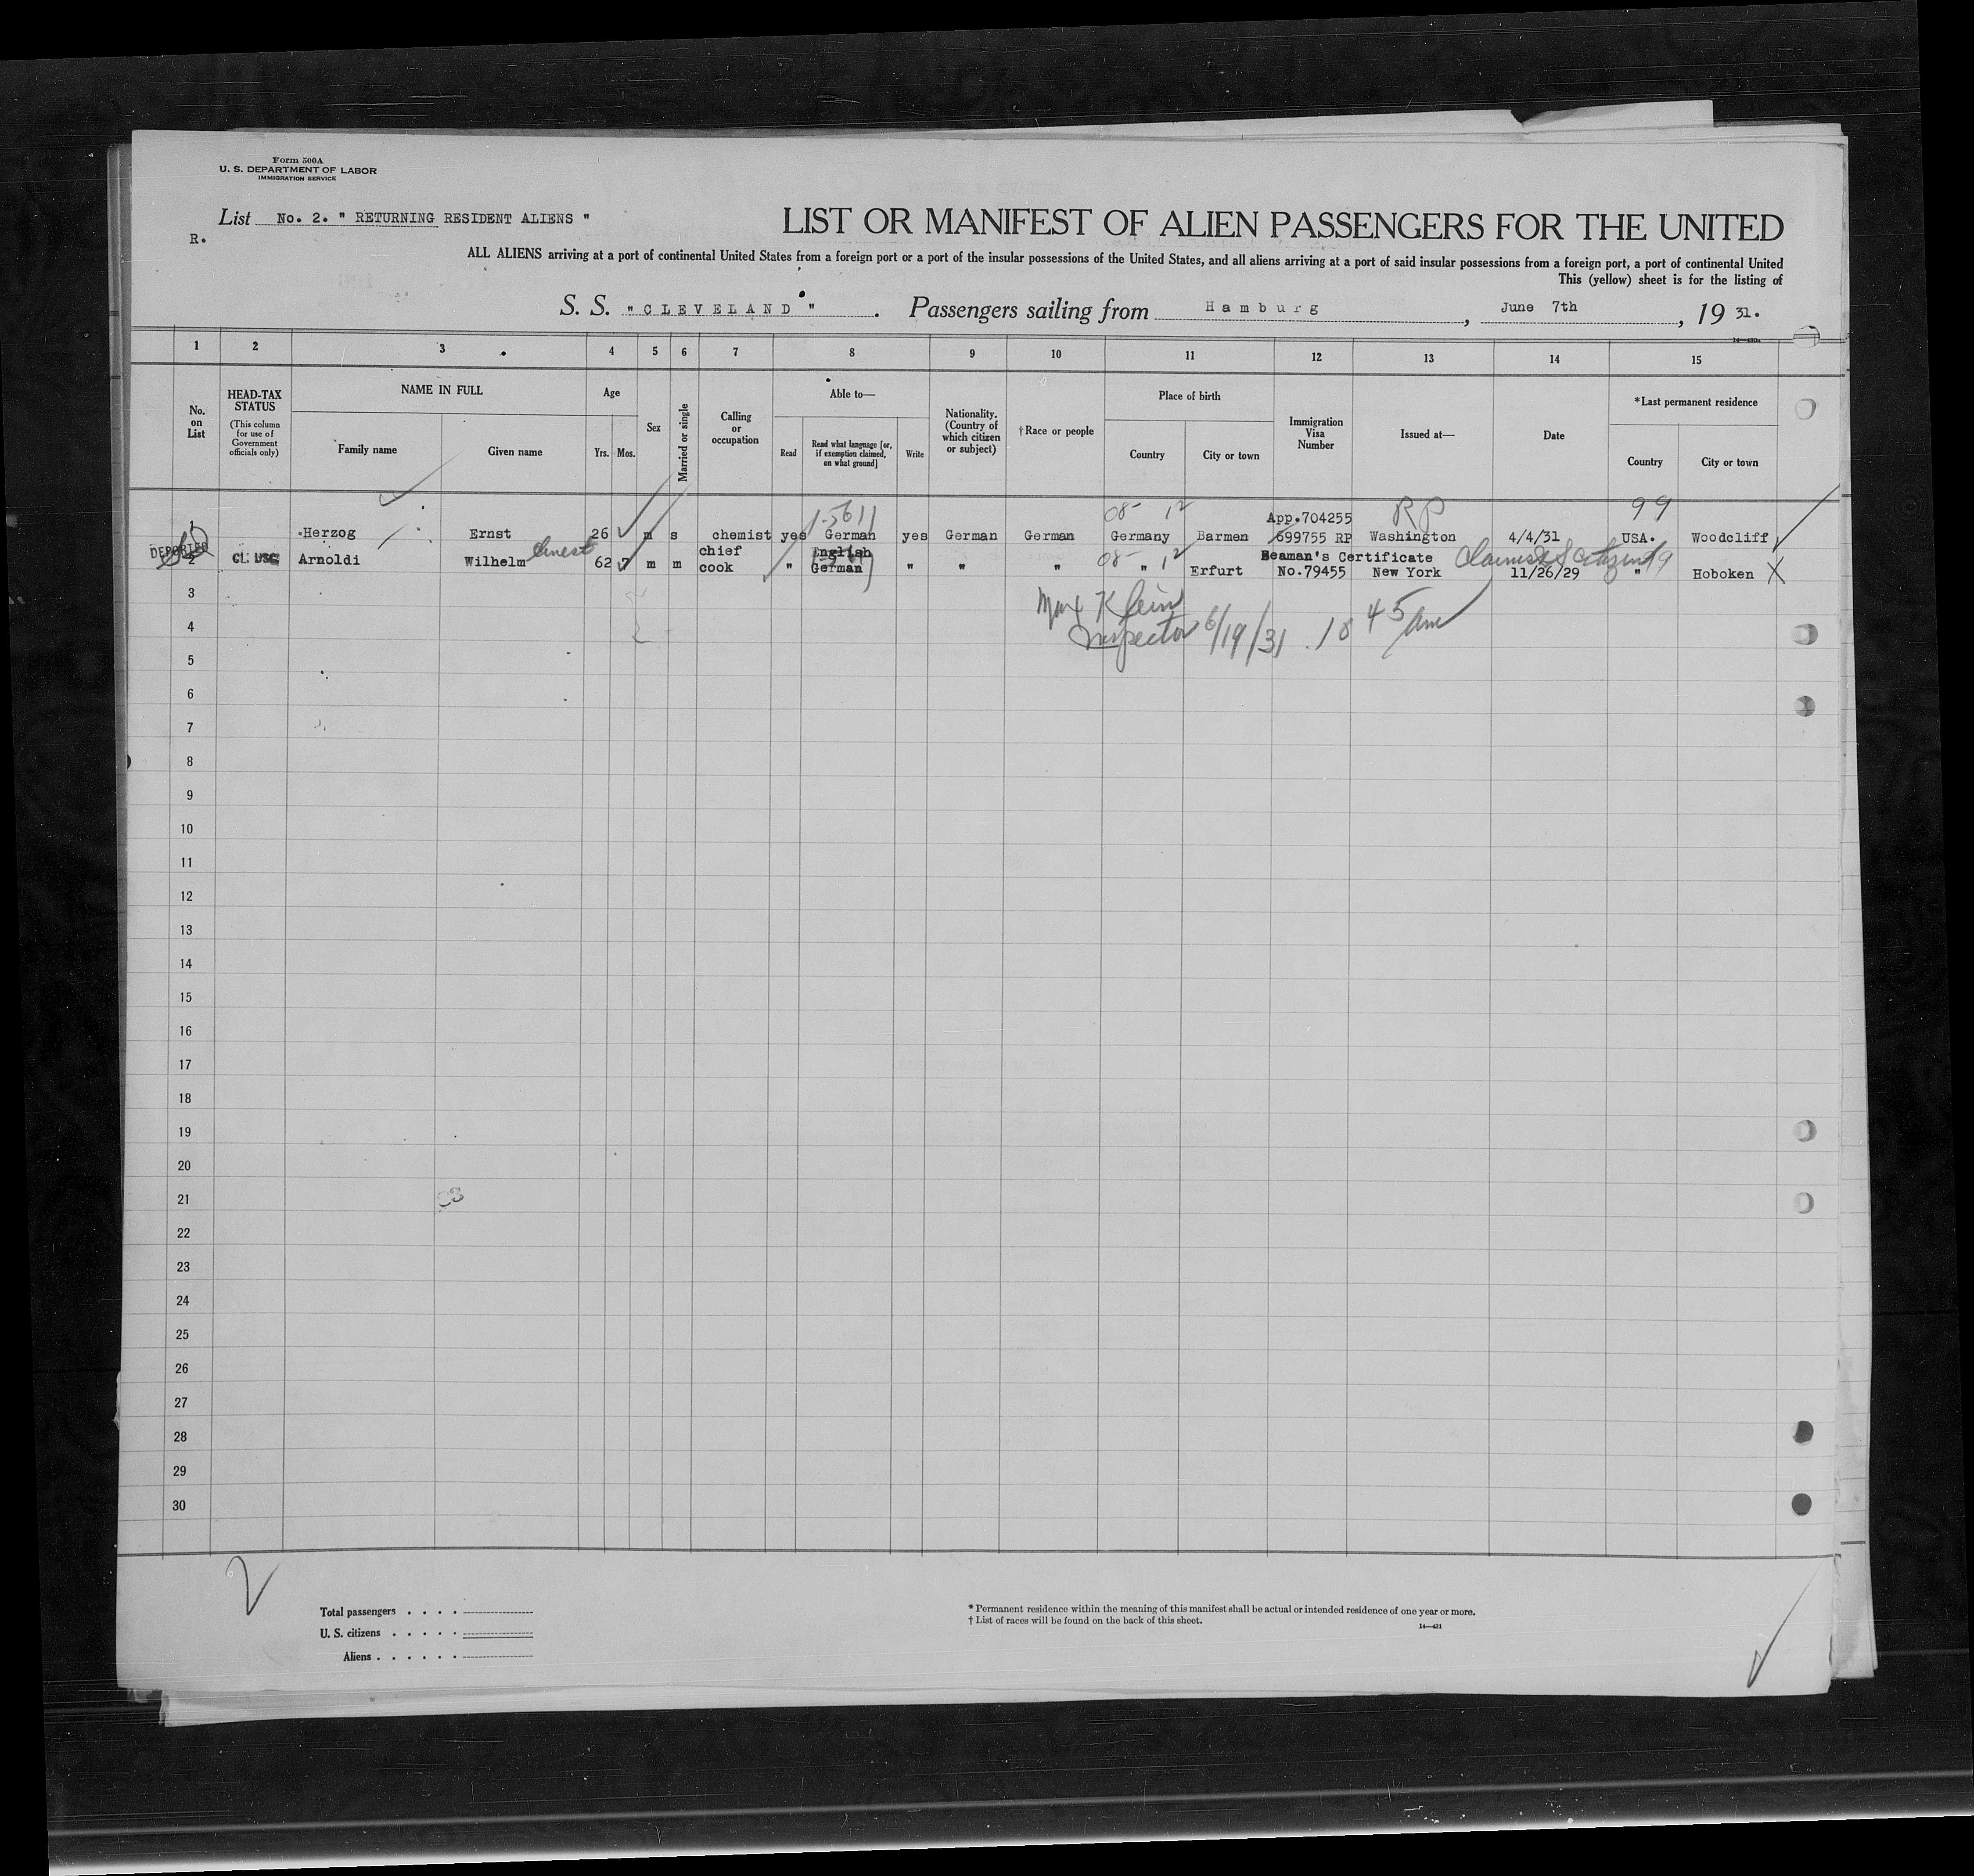 Form 500A
U. S. DEPARTMENT OF LABOR
IMMIGRATION SERVICE
List No. 2. " RETURNING RESIDENT ALIENS "
R.
LIST OR MANIFEST OF ALIEN PASSENGERS FOR THE UNITED
ALL ALIENS arriving at a port of continental United States from a foreign port or a port of the insular possessions of the United States, and all aliens arriving at a port of said insular possessions from a foreign port, a port of continental United
This (yellow) sheet is for the listing of
S. S. " CLEVELAND " . Passengers sailing from Hamburg , June 7th , 19 31.
14—430a
1 2 3 4 5 6 7 8 9 10 11 12 13 14 15
No. on List
HEAD-TAX STATUS
(This column for use of Government officials only)
NAME IN FULL
Family name
Given name
Age
Yrs.
Mos.
Sex
Married or single
Calling or occupation
Able to—
Read
Read what language [or, if exemption claimed, on what ground]
Write
Nationality. (Country of which citizen or subject)
† Race or people
Place of birth
Country
City or town
Immigration Visa Number
Issued at—
Date
*Last permanent residence
Country
City or town
1-5611 08- 12 App.704255 RP 99
1 Herzog Ernst 26 m s chemist yes German yes German German Germany Barmen 699755 RP Washington 4/4/31 USA. Woodcliff
DEPORTED
2 CL. USC Arnoldi Wilhelm Ernest 62 7 m m chief cook " English German " " " 08- " 12 Erfurt Seaman's Certificate No.79455 New York Claims US Citizen 11/26/29 " Hoboken X
3
Max Klein
4
Inspector 6/19/31 . 10 45 am
5
6
7
8
9
10
11
12
13
14
15
16
17
18
19
20
21
22
23
24
25
26
27
28
29
30
Total passengers . . . .
U. S. citizens . . . . .
Aliens . . . . . .
* Permanent residence within the meaning of this manifest shall be actual or intended residence of one year or more.
† List of races will be found on the back of this sheet.
14—431